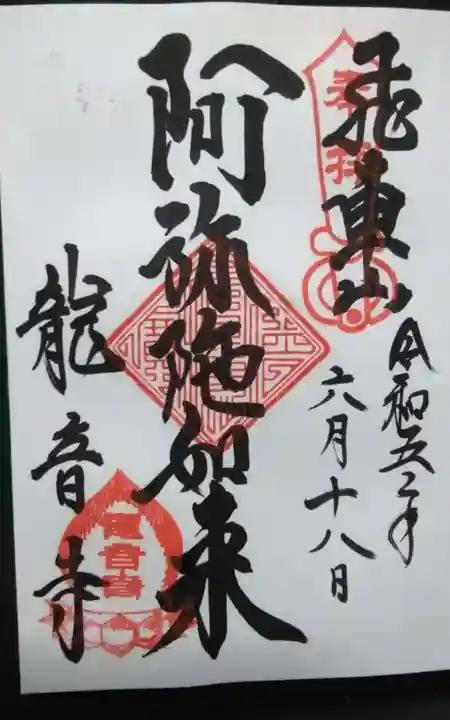 飛車山
奉拝
令和五年
六月十八日
阿弥陀如来
龍音寺
龍音寺